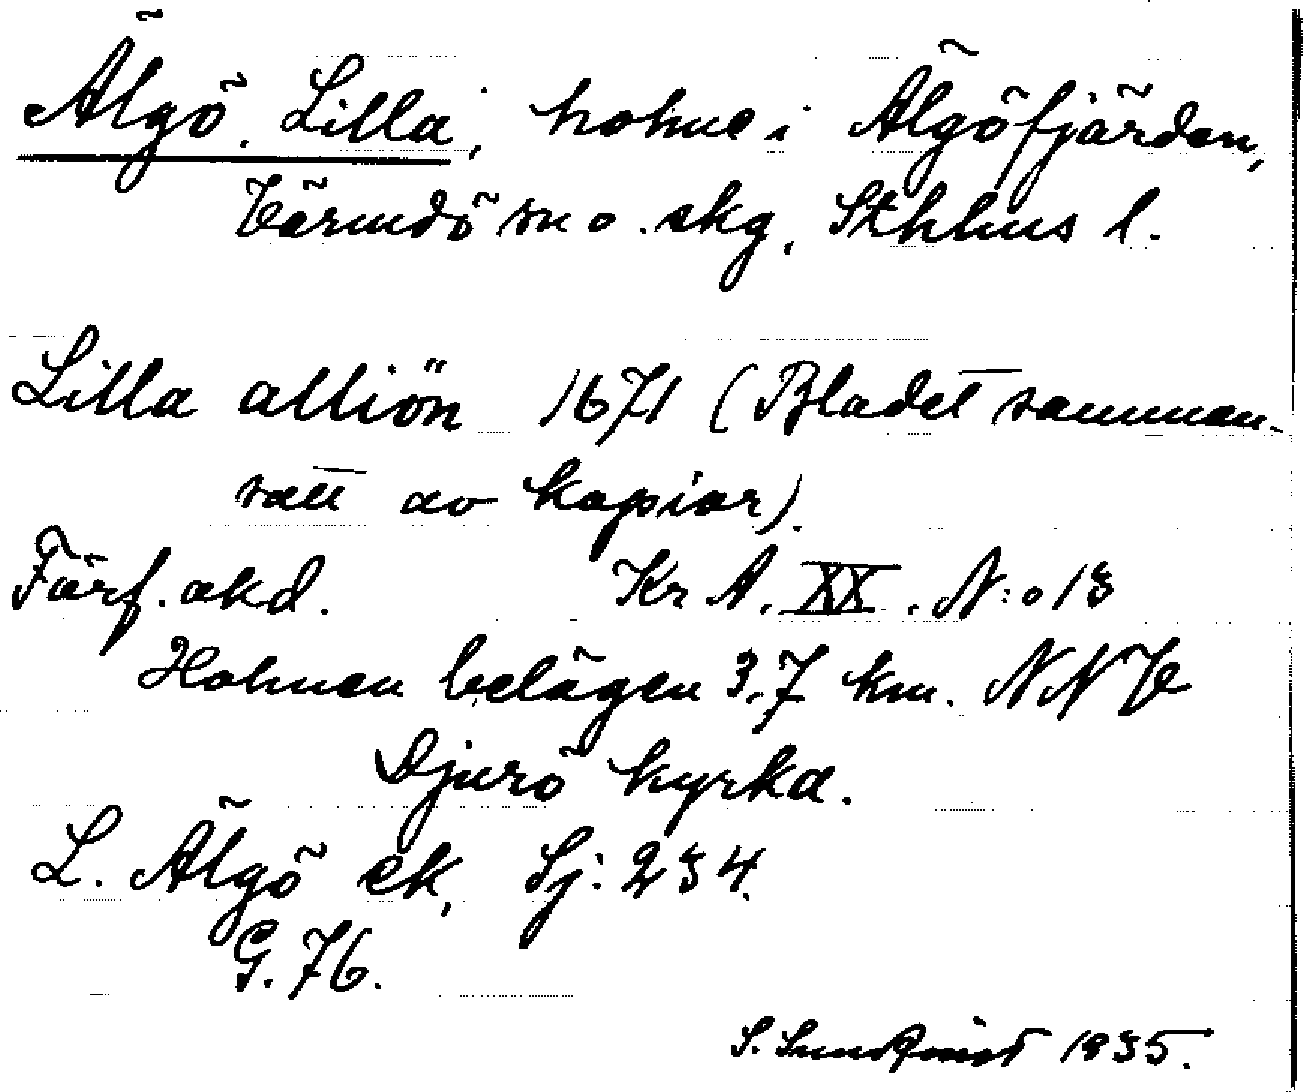 Älgö, Lilla, holme i Älgöfjärden,
Värmdö sn o. skg, Sthlms l.
Lilla allliön 1671 (Bladet samman-
satt av kopior).
Förf. okd. Kr A. XX. N:o 13
Holmen belägen 3,7 km. NNV
Djurö kyrka.
L. Älgö ek, Sj. 234.
G. 76.
S. Sundqvist 1935.